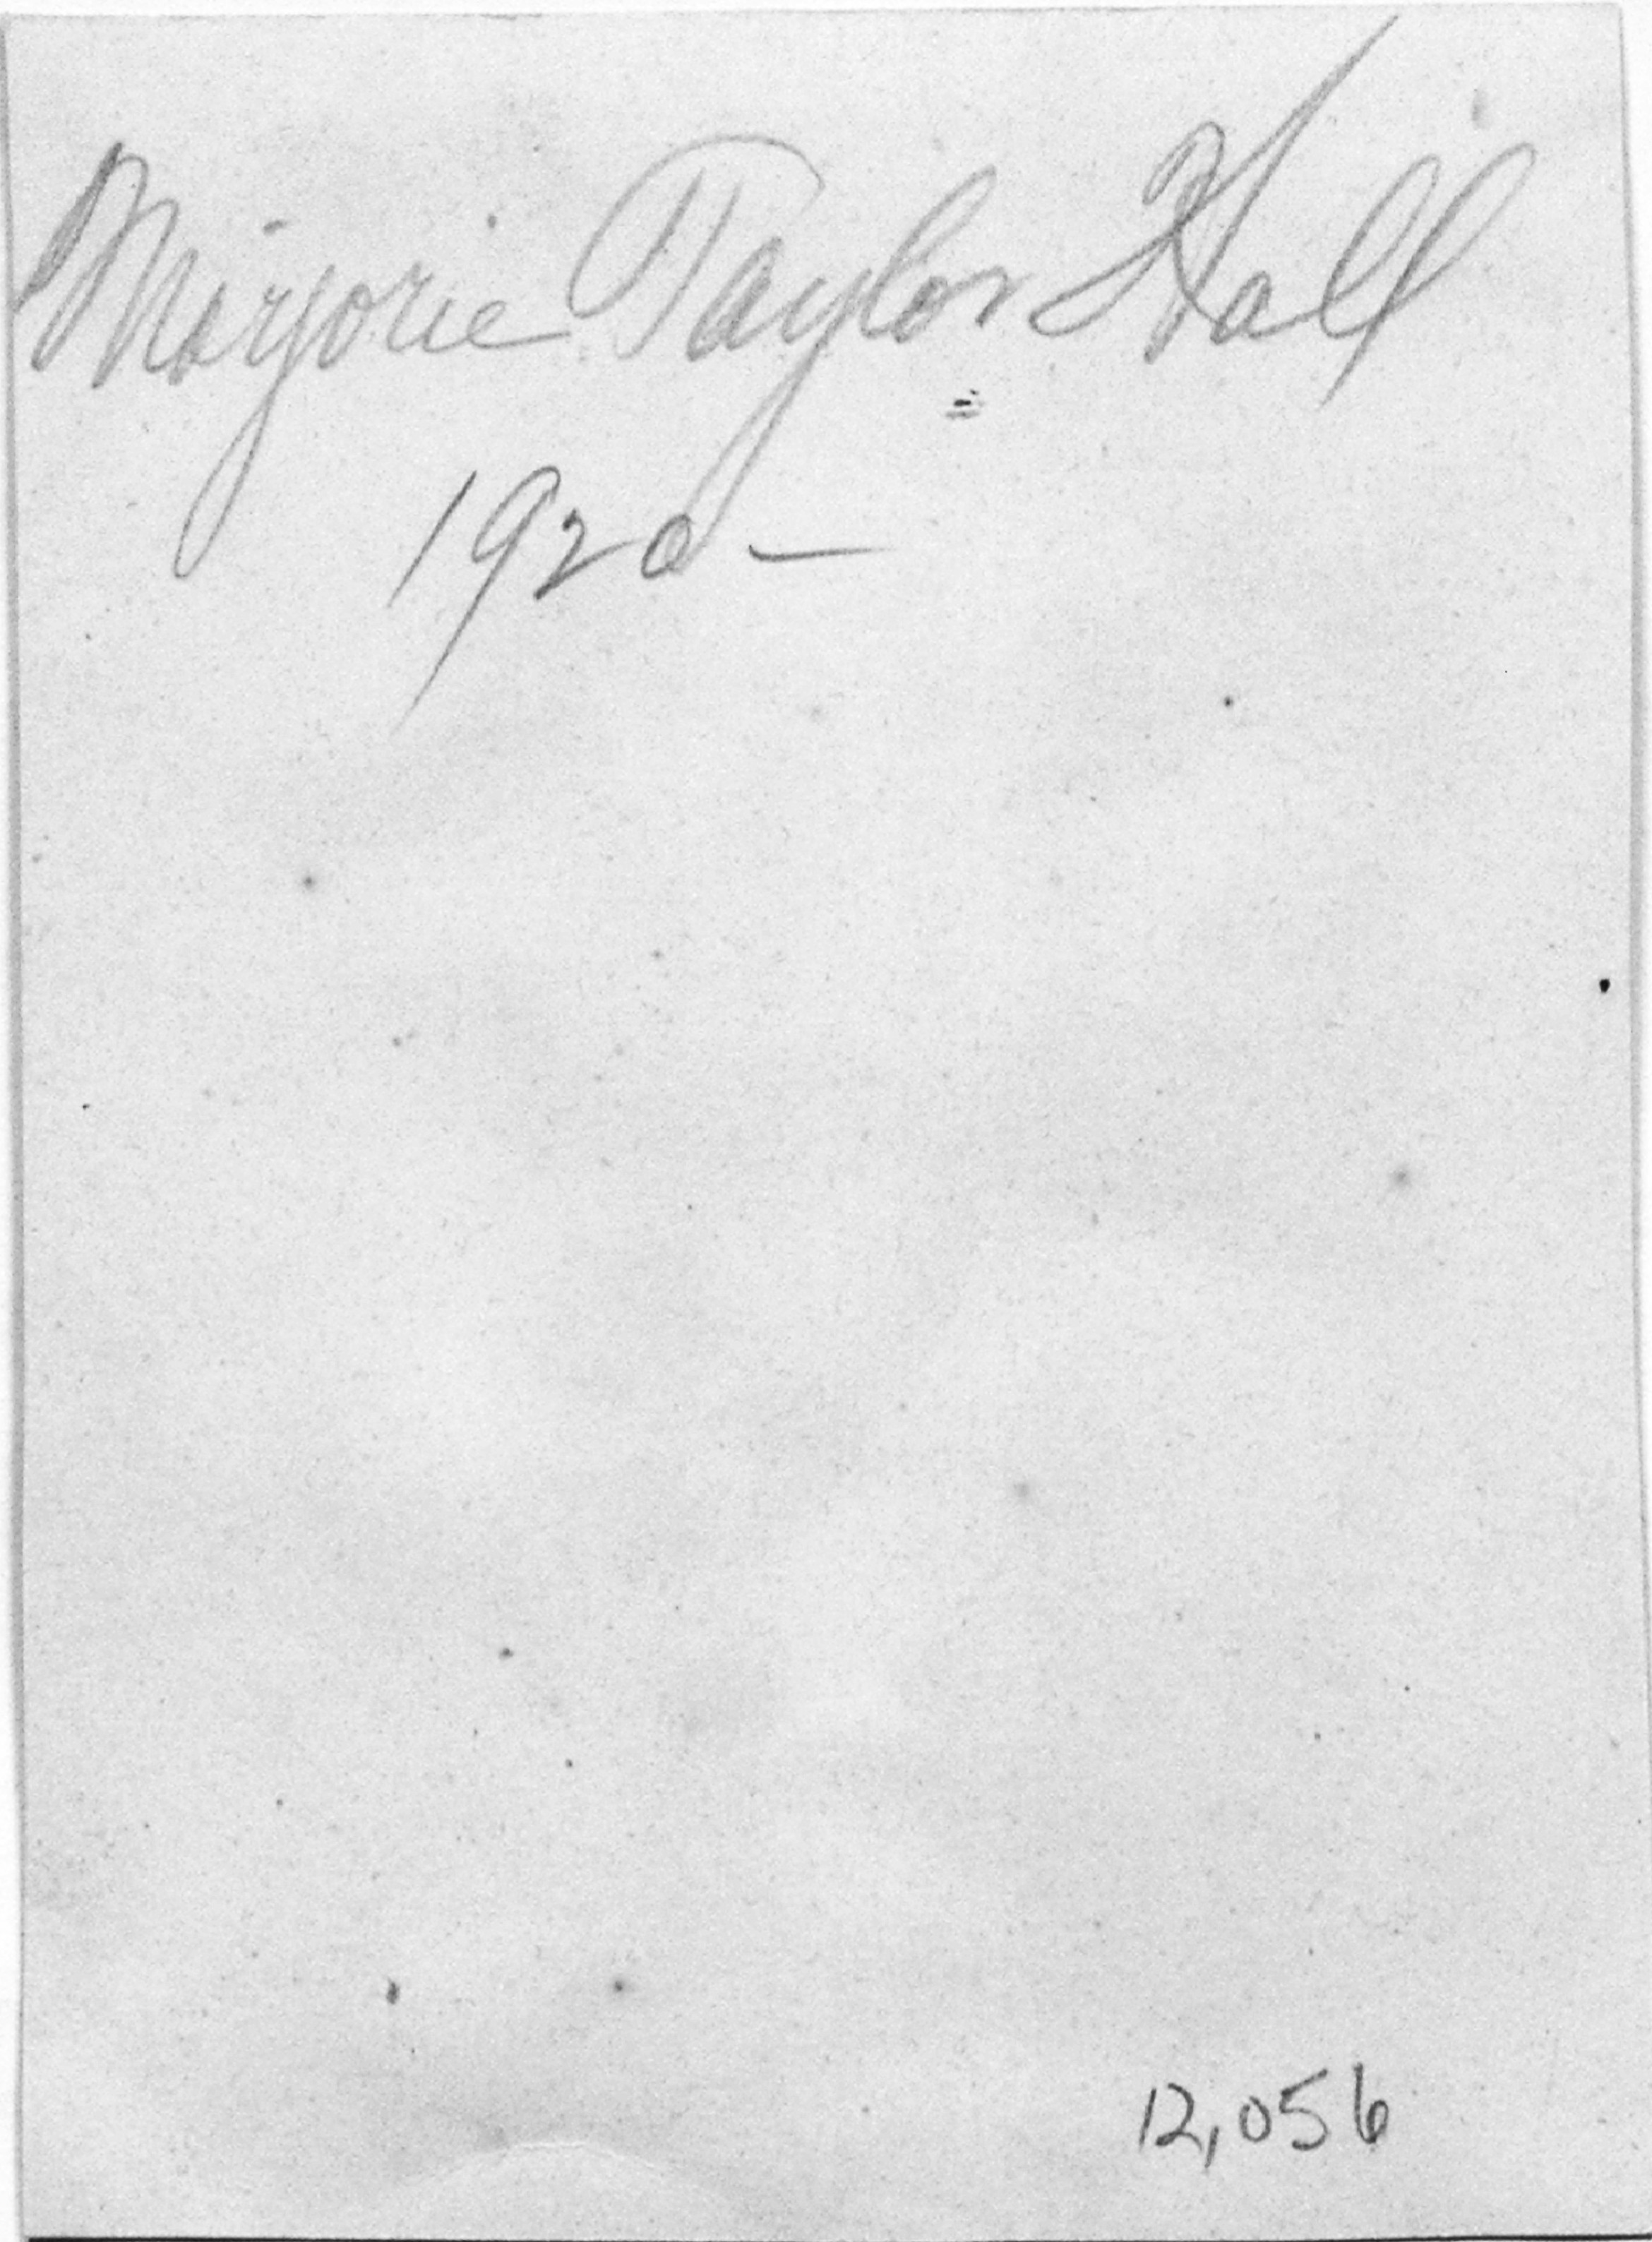 Marjorie Taylor Hall
1920-
12,056